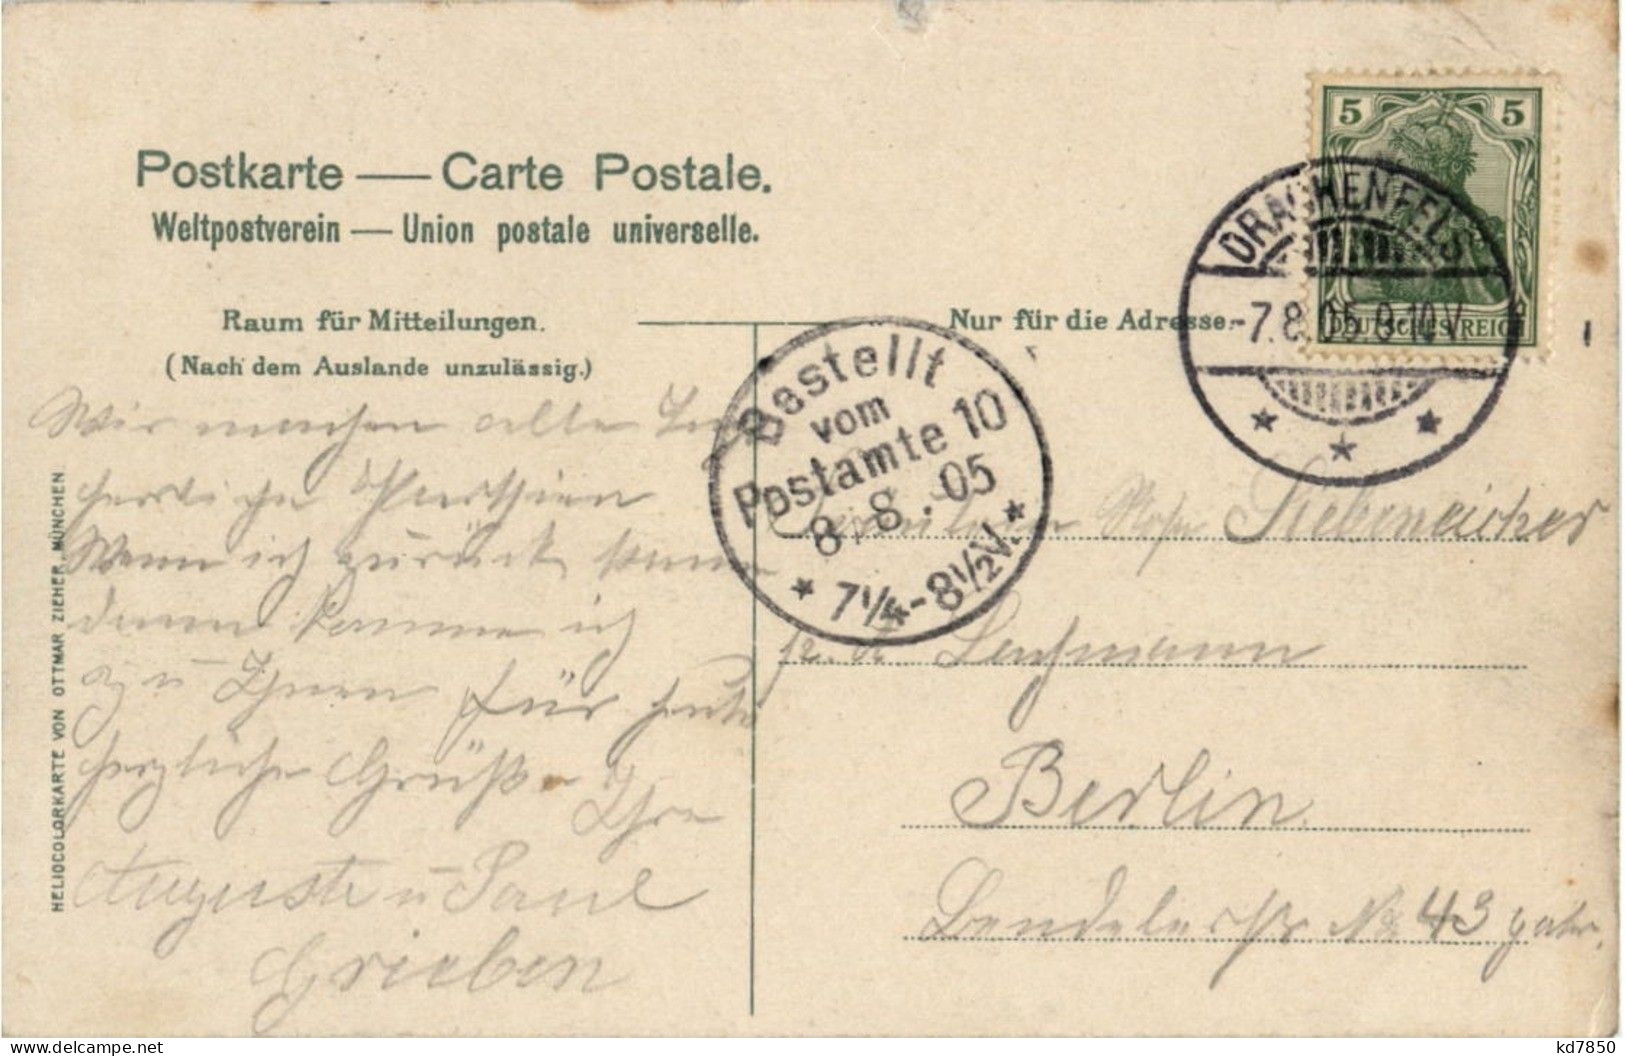 Postkarte — Carte Postale.
Weltpostverein — Union postale universelle.
Raum für Mitteilungen.
(Nach dem Auslande unzulässig.)
Nur für die Adresse.
5 5
DEUTSCHES REICH
DRACHENFELS
-7.8.05.9-10V.
* * *
Bestellt
vom
Postamte 10
8.8.05
* 7¼-8½V. *
HELIOCOLORKARTE VON OTTMAR ZIEHER, MÜNCHEN
Wir machen alle
herrliche Parthien
Wenn ich zurück
dann komme ich
zu Ihnen für heute
herzliche Grüße
Ihre
Auguste u Paul
Grieben
Fräulein Rosa Siebeneicher
Berlin.
No 43
delcampe.net
kd7850